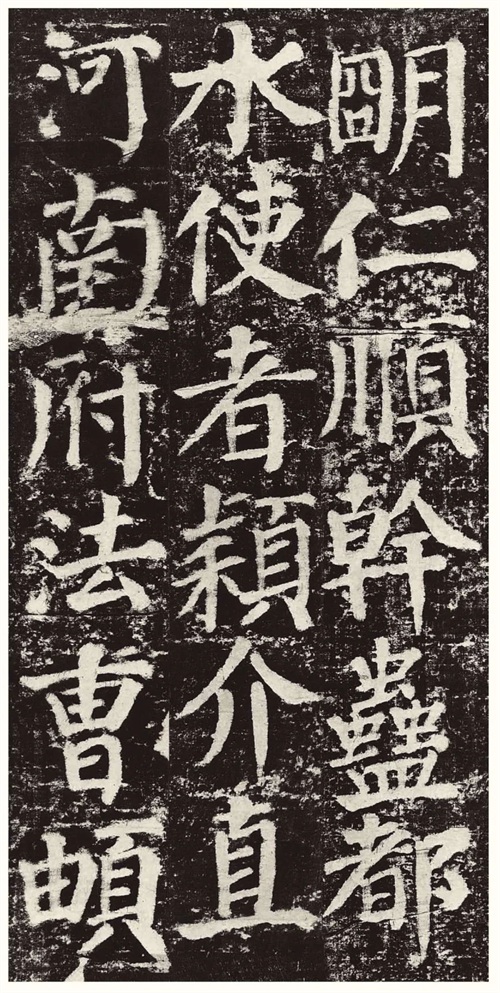 明仁順幹蠱都
水使者穎介直
河南府法曹頔